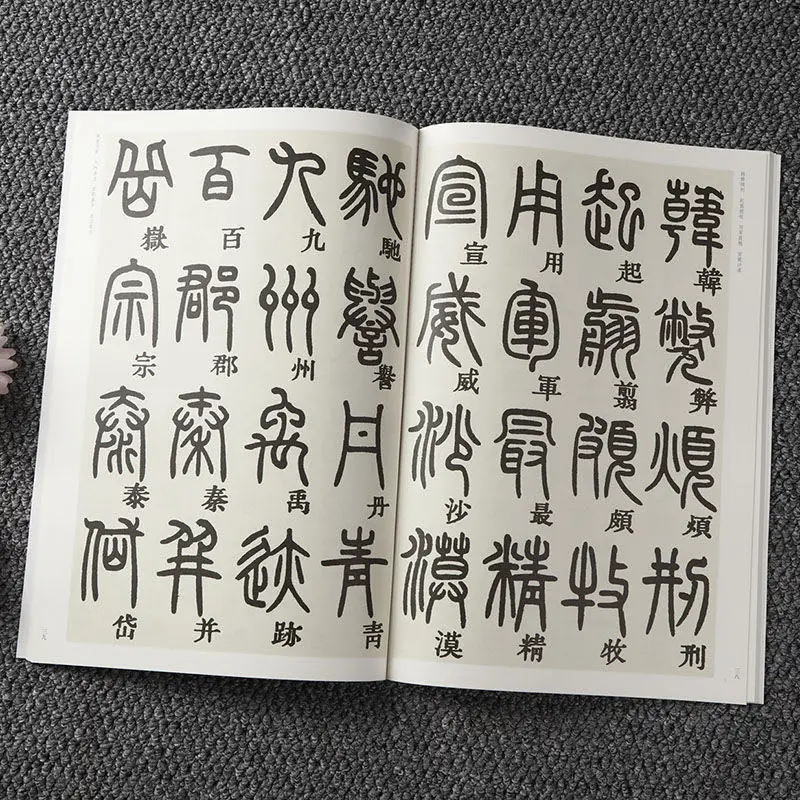 韓弊煩刑
起翦頗牧
用軍最精
宣威沙漠
三八
馳譽丹青
九州禹跡
百郡秦并
嶽宗泰岱
三九